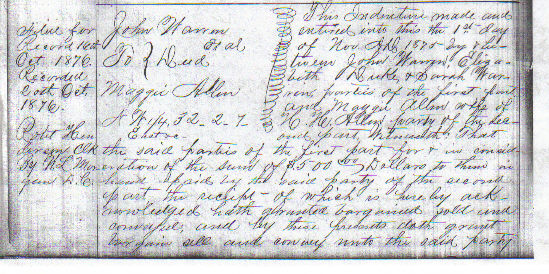 Filed for
Record 10th
Oct. 1876.
Recorded
20th Oct.
1876.
Robt Hen
derson Clk
By W L Mor
gan D.C.
John Warren
et al
To } Deed
Maggie Allen
N W 1/4, 32-2-7
This Indenture made and
entered into this the 1st day
of Nov A.D. 1875 by & be
tween John Warren, Eliza-
beth Duke, & Sarah War
ren, parties of the first part
and Maggie Allen wife of
Allen party of the sec-
ond part, Witnesseth That
the said parties of the first part for & in consid
eration of the sum of $500 00 Dollars to them in
hand paid by the said party of the second
part the receipt of which is hereby ack-
nowledged hath granted bargained sold and
conveyed and by these presents doth grant
bargain sell and convey unto the said party